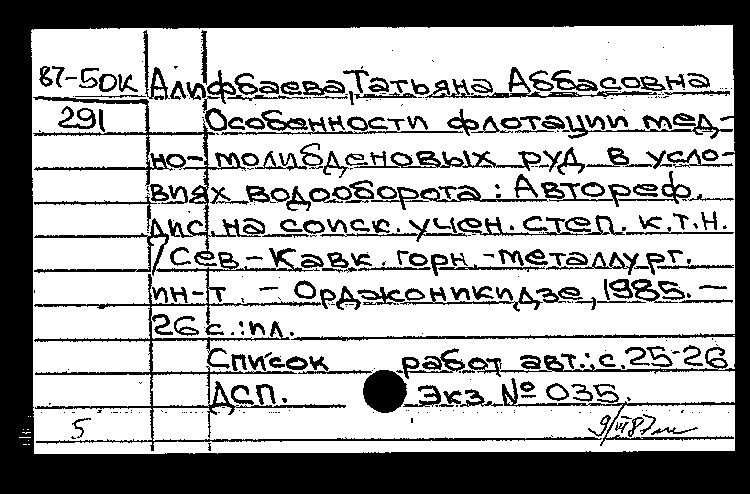 87-5ОК Алифбаева, Татьяна Аббасовна
291 Особенности флотации мед-
но-молибденовых руд в усло-
виях водооборота: Автореф.
дис. на соиск. учен. степ. к.т.н.
/Сев.-Кавк. горн.-металлург.
ин-т. - Орджоникидзе, 1985. -
26 с.: ил.
Список работ авт.: с. 25-26
ДСП. Экз. № 035.
5